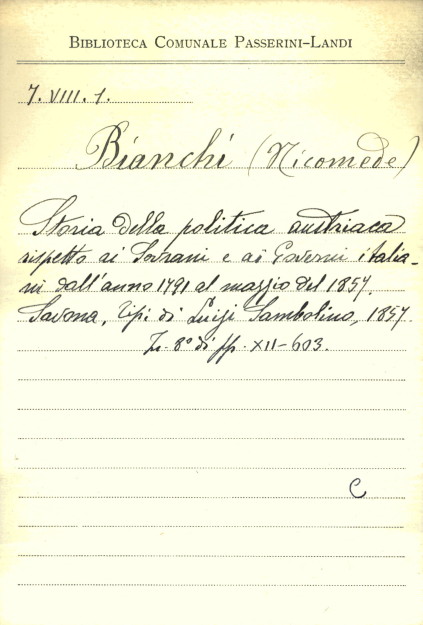 BIBLIOTECA COMUNALE PASSERINI-LANDI
7. VIII. 1.
Bianchi (Nicomede)
Storia della politica austriaca
rispetto ai Sovrani e ai Governi italia-
ni dall'anno 1791 al maggio del 1857.
Savona, Tipi di Luigi Sambolino, 1857.
In. 8° di pp. XII-603.
C